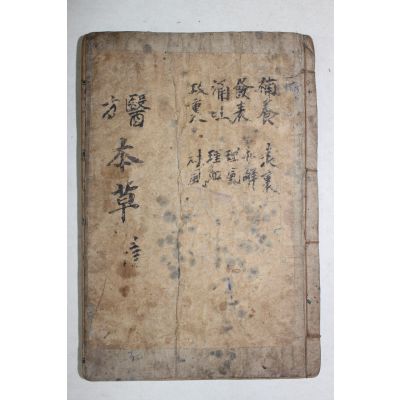 補養 表裏
發表 和解
涌吐 理氣
攻裏 理血
祛風
醫方
本草